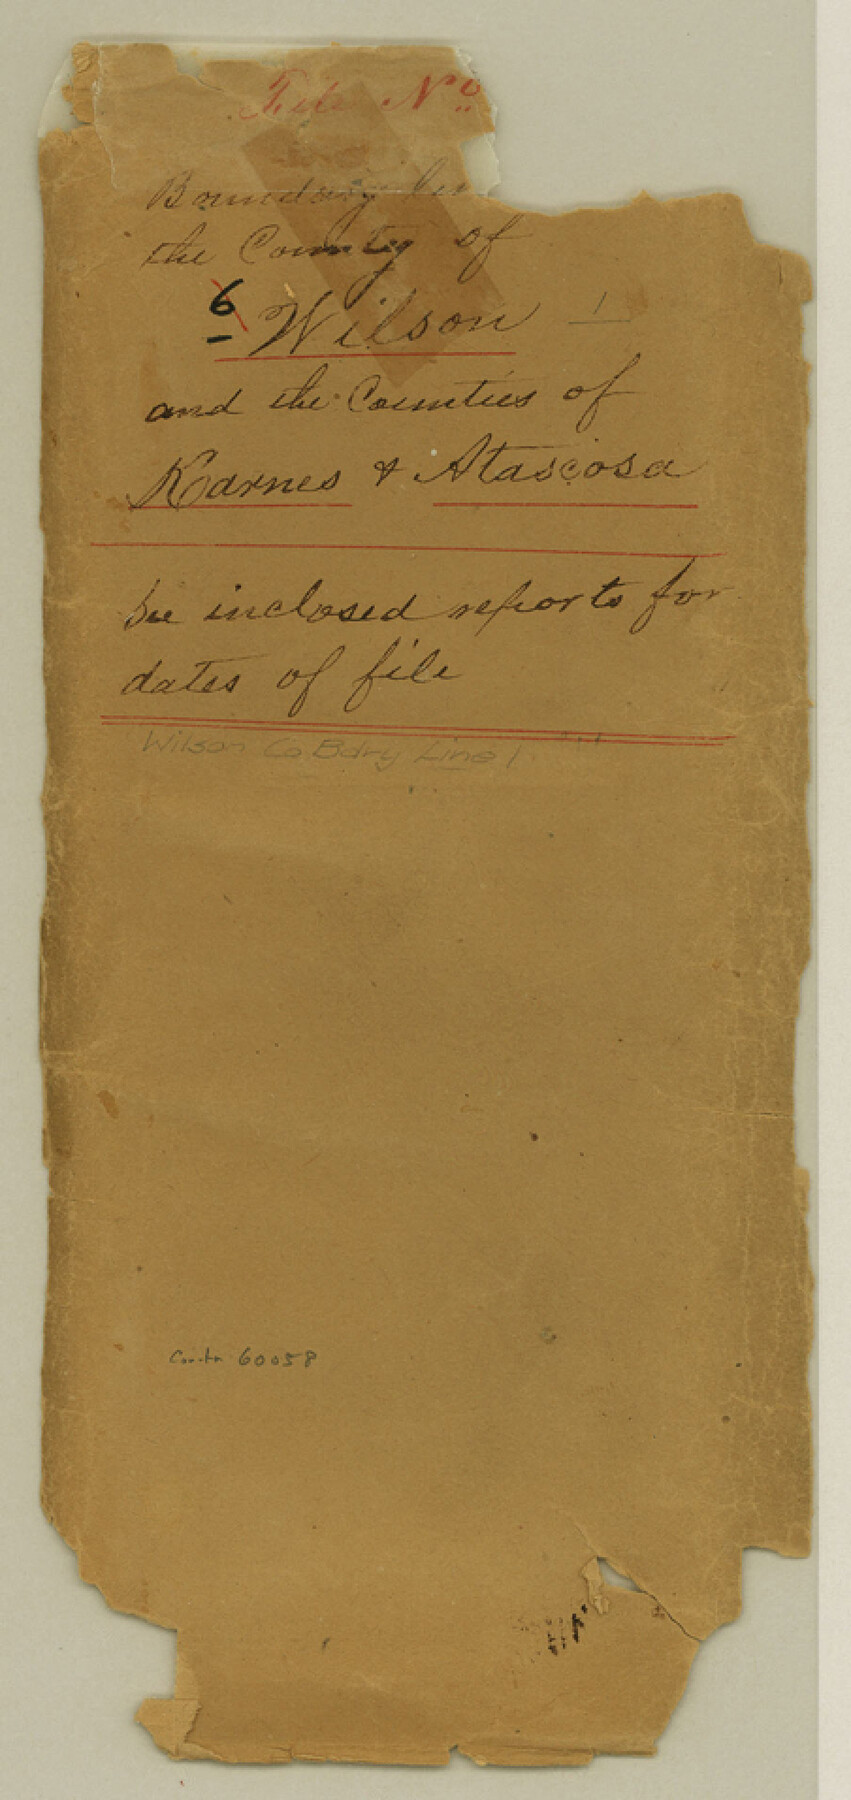 File No
Boundary
the County of
6 Wilson 1
and the Counties of
Karnes & Atascosa
See inclosed reports for
dates of file
Wilson Co Bdry Line 1.
60058